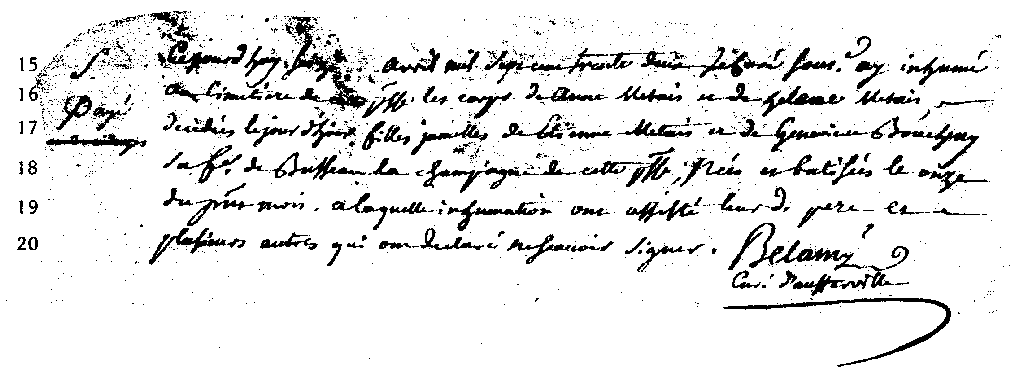 15 S Cejourdhuy seize avril mil sept cent trente deux je Curé sous.é ay inhumé
16 Payé au Cimetiere de cette psse les corps de Anne Metais et de helaine Metais
17 decedées le jour d'hier filles jumelles de Etienne Metais et de Genevieve Bouchay
18 sa fe. de Busseau la champagne de cette psse, Nées et batisées le onze
19 du pnt mois. a laquelle inhumation ont assisté leur d. pere et
20 plusieurs autres qui ont declaré ne scavoir signer. Belamy
Curé d'aussevville